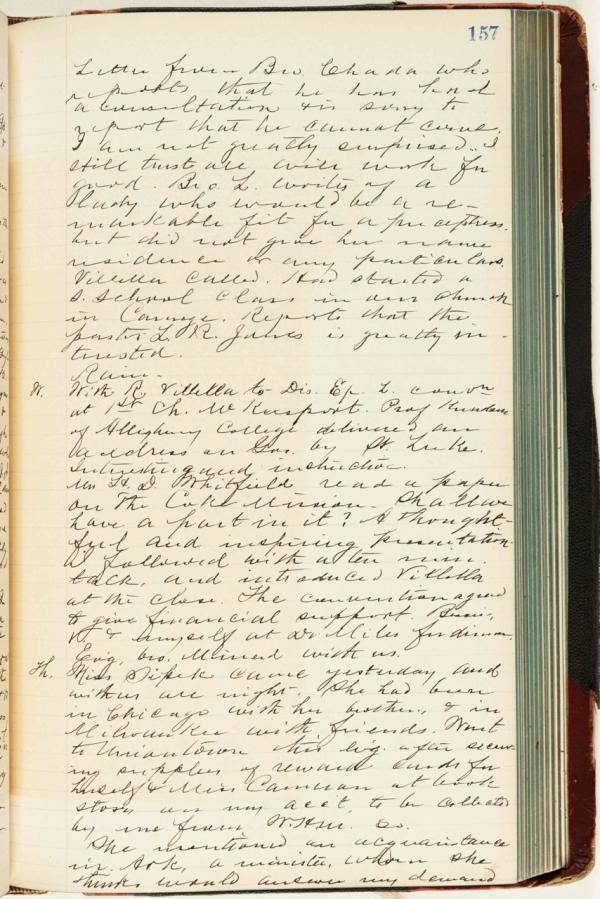 157
Letter from Bro. Chada who
reports that he has had
a consultation & is sorry to
report that he cannot come.
I am not greatly surprised. I
still trust all will work for
good. Bro. L. writes of a
lady who would be a re-
markable fit for a preceptress.
but did not give her name
residence or any particulars.
Villella called. Had started a
S. School class in our church
in Carnege. Reports that the
pastor L. R. Jones is greatly in-
terested.
Rain.
W. With R. Villella to Dis. Ep. L. convn
at 1st Ch. McKeesport. Prof
of Allegheny College delivered an
address on Gos. by St. Luke.
Interesting and instructive.
Mr. H. D. Whitfield read a paper
on The Coke Mission. Shall we
have a part in it? A thought-
ful and inspiring presentation.
I followed with a ten min.
talk, and introduced Villella
at the close. The convention agreed
to give financial support.
V. & myself at Dr Miles for dinner.
Evg. bro. with us.
Th. Miss came yesterday and
with us all night. She had been
in Chicago with her brother, & in
Milwaukee with friends. Went
to Uniontown this evg. after secur-
ing supplies of reward cards for
herself & Miss Cameron at book
store on my acc't, to be collected
by me from Co.
She mentioned an acquaintance
in Ark, a minister, whom she
thinks would answer my demand